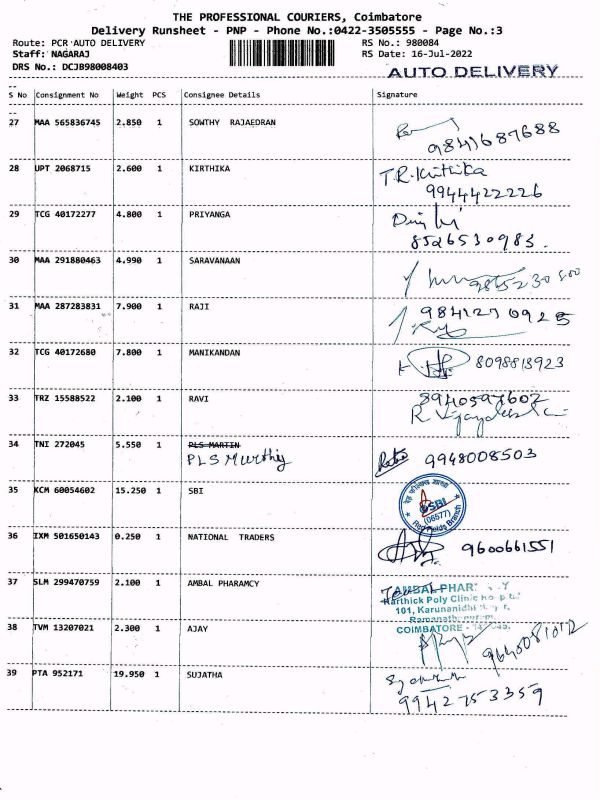 THE PROFESSIONAL COURIERS, Coimbatore
Delivery Runsheet - PNP - Phone No.:0422-3505555 - Page No.:3
Route: PCR AUTO DELIVERY RS No.: 980084
Staff: NAGARAJ RS Date: 16-Jul-2022
DRS No.: DCJB98008403 AUTO DELIVERY
S No Consignment No Weight PCS Consignee Details Signature
27 MAA 565836745 2.850 1 SOWTHY RAJAEDRAN
9841687688
28 UPT 2068715 2.600 1 KIRTHIKA T.R.Kirthika
9944422226
29 TCG 40172277 4.800 1 PRIYANGA
8526530983.
30 MAA 291880463 4.990 1 SARAVANAAN
31 MAA 287283831 7.900 1 RAJI 9841270925
32 TCG 40172680 7.800 1 MANIKANDAN 8098813923
33 TRZ 15588522 2.100 1 RAVI 8940597602
34 TNI 272045 5.550 1 PLS MARTIN
PLS Murthy 9948008503
35 KCM 60054602 15.250 1 SBI SBI
(06577)
Red Fields Branch
36 IXM 501650143 0.250 1 NATIONAL TRADERS 9600661551
37 SLM 299470759 2.100 1 AMBAL PHARAMCY
Karthick Poly Clinic
101, Karunanidhi
COIMBATORE
38 TVM 13207021 2.300 1 AJAY 9640081012
39 PTA 952171 19.950 1 SUJATHA
9942753359